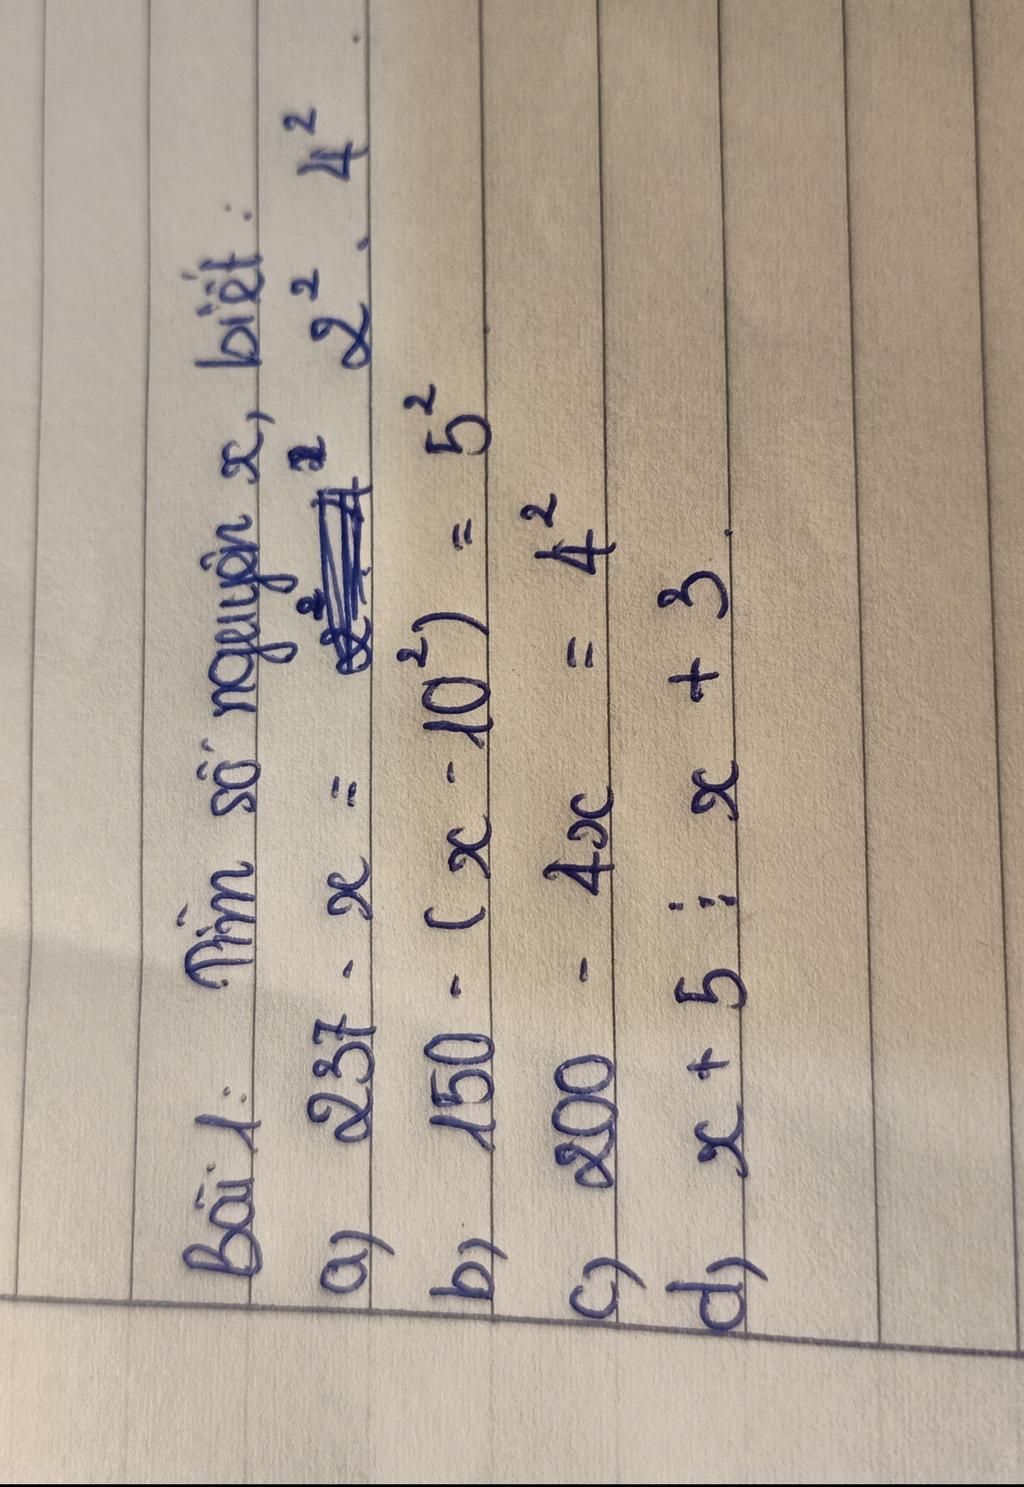 Bài 1: Tìm số nguyên x, biết:
a) 237 - x = 2² . 4²
b) 150 - (x - 10²) = 5²
c) 200 - 4x = 4²
d) x + 5 ⋮ x + 3.